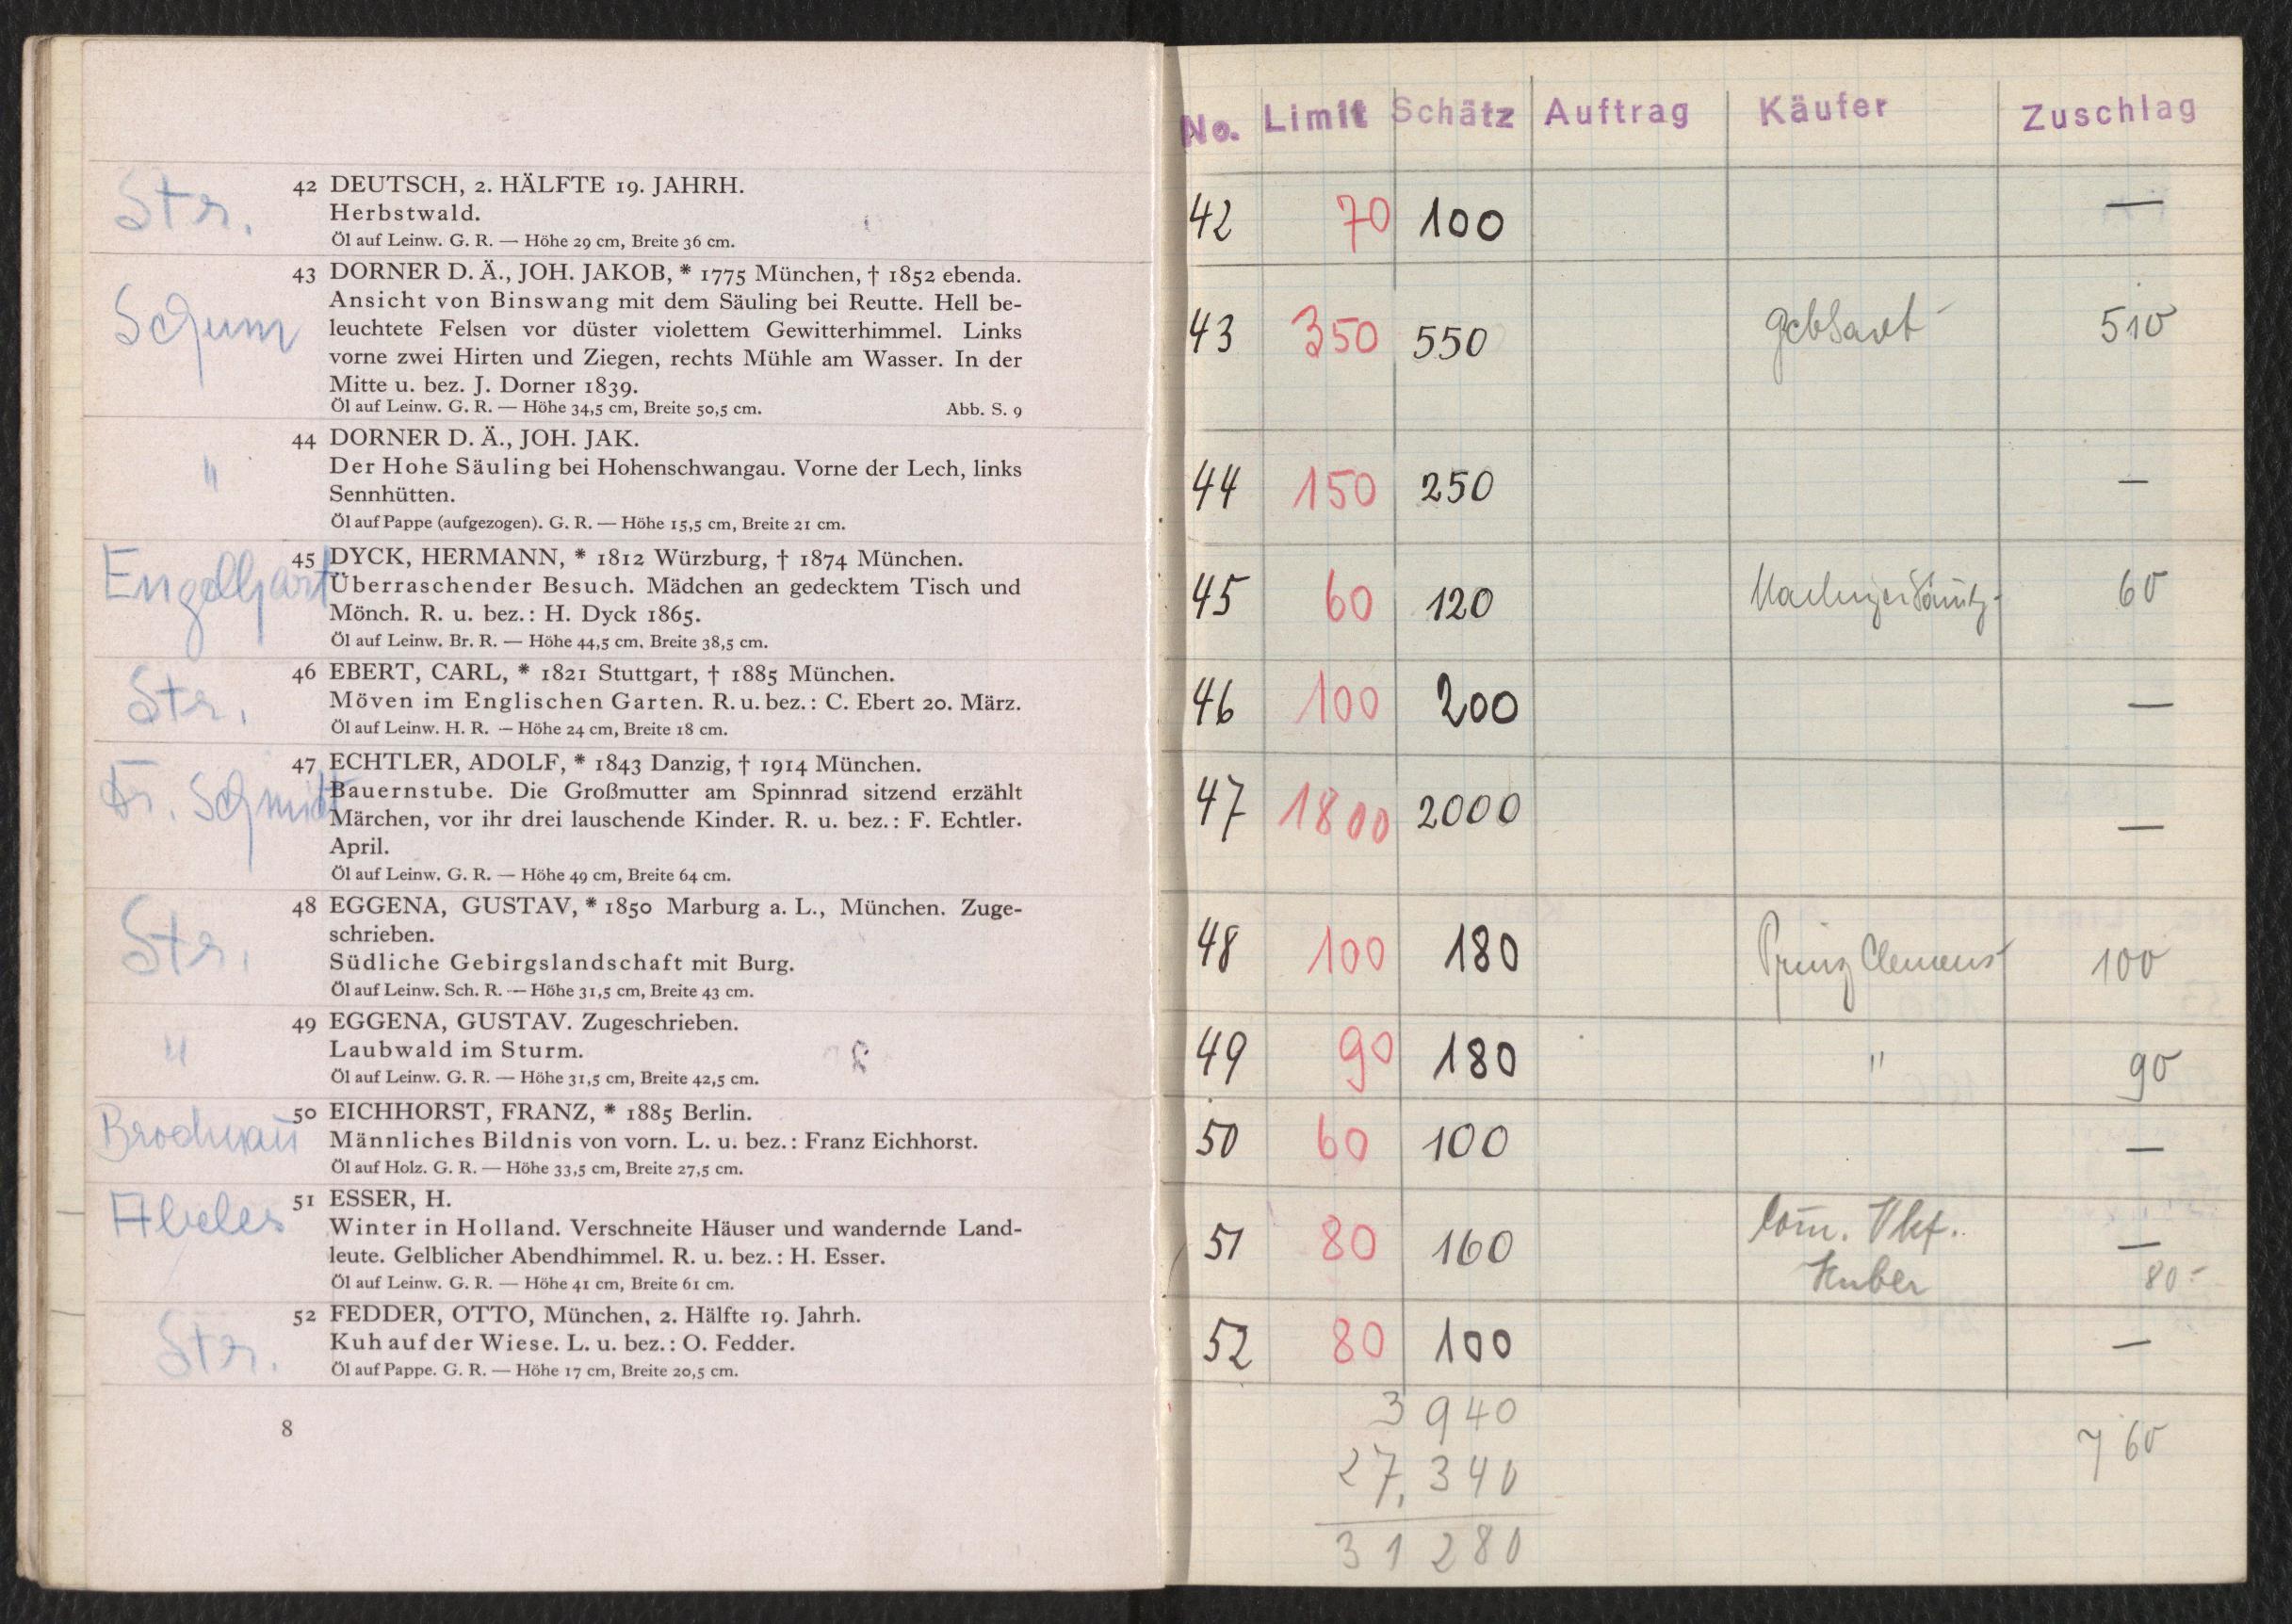 Str.
42 DEUTSCH, 2. HÄLFTE 19. JAHRH.
Herbstwald.
Öl auf Leinw. G. R. — Höhe 29 cm, Breite 36 cm.
43 DORNER D. Ä., JOH. JAKOB, * 1775 München, † 1852 ebenda.
Ansicht von Binswang mit dem Säuling bei Reutte. Hell be-
leuchtete Felsen vor düster violettem Gewitterhimmel. Links
vorne zwei Hirten und Ziegen, rechts Mühle am Wasser. In der
Mitte u. bez. J. Dorner 1839.
Öl auf Leinw. G. R. — Höhe 34,5 cm, Breite 50,5 cm. Abb. S. 9
"
44 DORNER D. Ä., JOH. JAK.
Der Hohe Säuling bei Hohenschwangau. Vorne der Lech, links
Sennhütten.
Öl auf Pappe (aufgezogen). G. R. — Höhe 15,5 cm, Breite 21 cm.
Engelhart
45 DYCK, HERMANN, * 1812 Würzburg, † 1874 München.
Überraschender Besuch. Mädchen an gedecktem Tisch und
Mönch. R. u. bez.: H. Dyck 1865.
Öl auf Leinw. Br. R. — Höhe 44,5 cm, Breite 38,5 cm.
Str.
46 EBERT, CARL, * 1821 Stuttgart, † 1885 München.
Möven im Englischen Garten. R. u. bez.: C. Ebert 20. März.
Öl auf Leinw. H. R. — Höhe 24 cm, Breite 18 cm.
Fr. Schmidt
47 ECHTLER, ADOLF, * 1843 Danzig, † 1914 München.
Bauernstube. Die Großmutter am Spinnrad sitzend erzählt
Märchen, vor ihr drei lauschende Kinder. R. u. bez.: F. Echtler.
April.
Öl auf Leinw. G. R. — Höhe 49 cm, Breite 64 cm.
Str.
48 EGGENA, GUSTAV, * 1850 Marburg a. L., München. Zuge-
schrieben.
Südliche Gebirgslandschaft mit Burg.
Öl auf Leinw. Sch. R. — Höhe 31,5 cm, Breite 43 cm.
"
49 EGGENA, GUSTAV. Zugeschrieben.
Laubwald im Sturm.
Öl auf Leinw. G. R. — Höhe 31,5 cm, Breite 42,5 cm.
50 EICHHORST, FRANZ, * 1885 Berlin.
Männliches Bildnis von vorn. L. u. bez.: Franz Eichhorst.
Öl auf Holz. G. R. — Höhe 33,5 cm, Breite 27,5 cm.
Abeles
51 ESSER, H.
Winter in Holland. Verschneite Häuser und wandernde Land-
leute. Gelblicher Abendhimmel. R. u. bez.: H. Esser.
Öl auf Leinw. G. R. — Höhe 41 cm, Breite 61 cm.
Str.
52 FEDDER, OTTO, München, 2. Hälfte 19. Jahrh.
Kuh auf der Wiese. L. u. bez.: O. Fedder.
Öl auf Pappe. G. R. — Höhe 17 cm, Breite 20,5 cm.
8
No. Limit Schätz Auftrag Käufer Zuschlag
42 70 100 —
43 350 550 Gebhart 510
44 150 250 —
45 60 120 60
46 100 200 —
47 1800 2000 —
48 100 180 Prinz Clemens 100
49 90 180 " 90
50 60 100 —
51 80 160 —
Huber 80.-
52 80 100 —
3 940
760
27,340
31 280